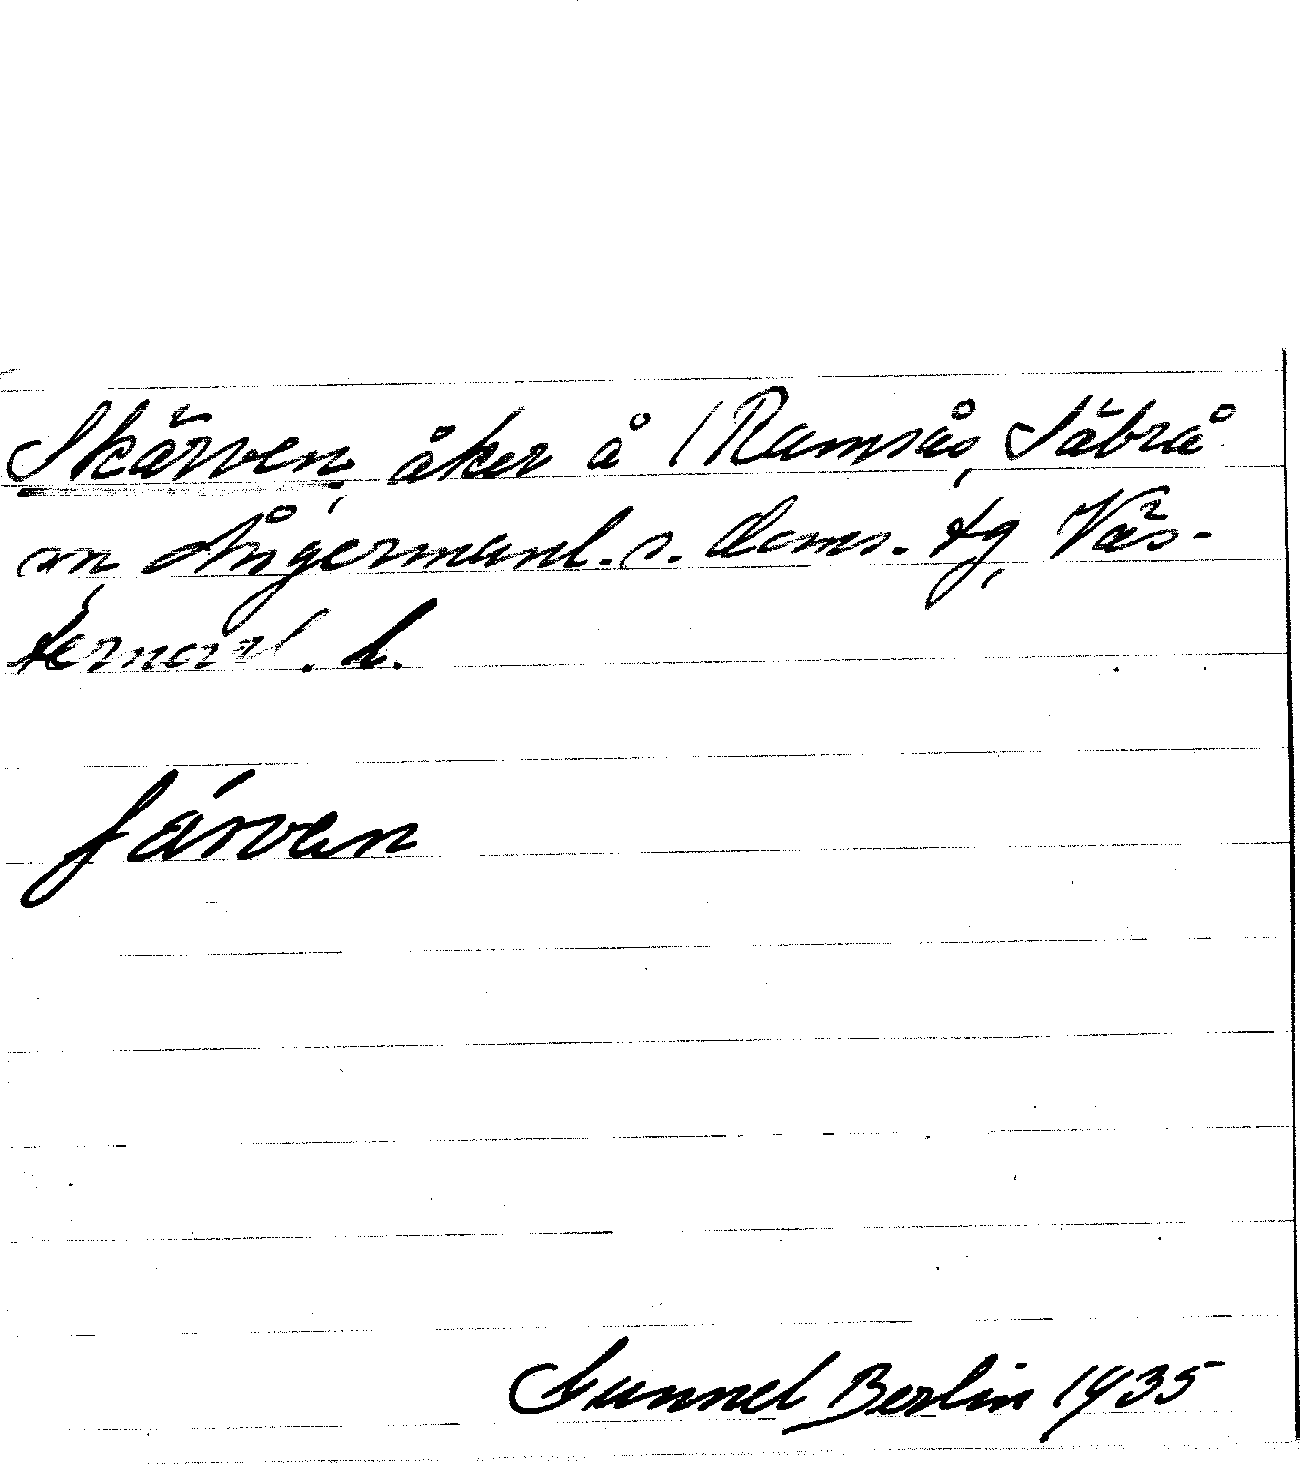 Skärven, åker å Ramsås, Säbrå
sn, Ångermanl. s. doms. tg, Väs-
ternorrl. l.
ʃärven
Gunnel Berlin 1935